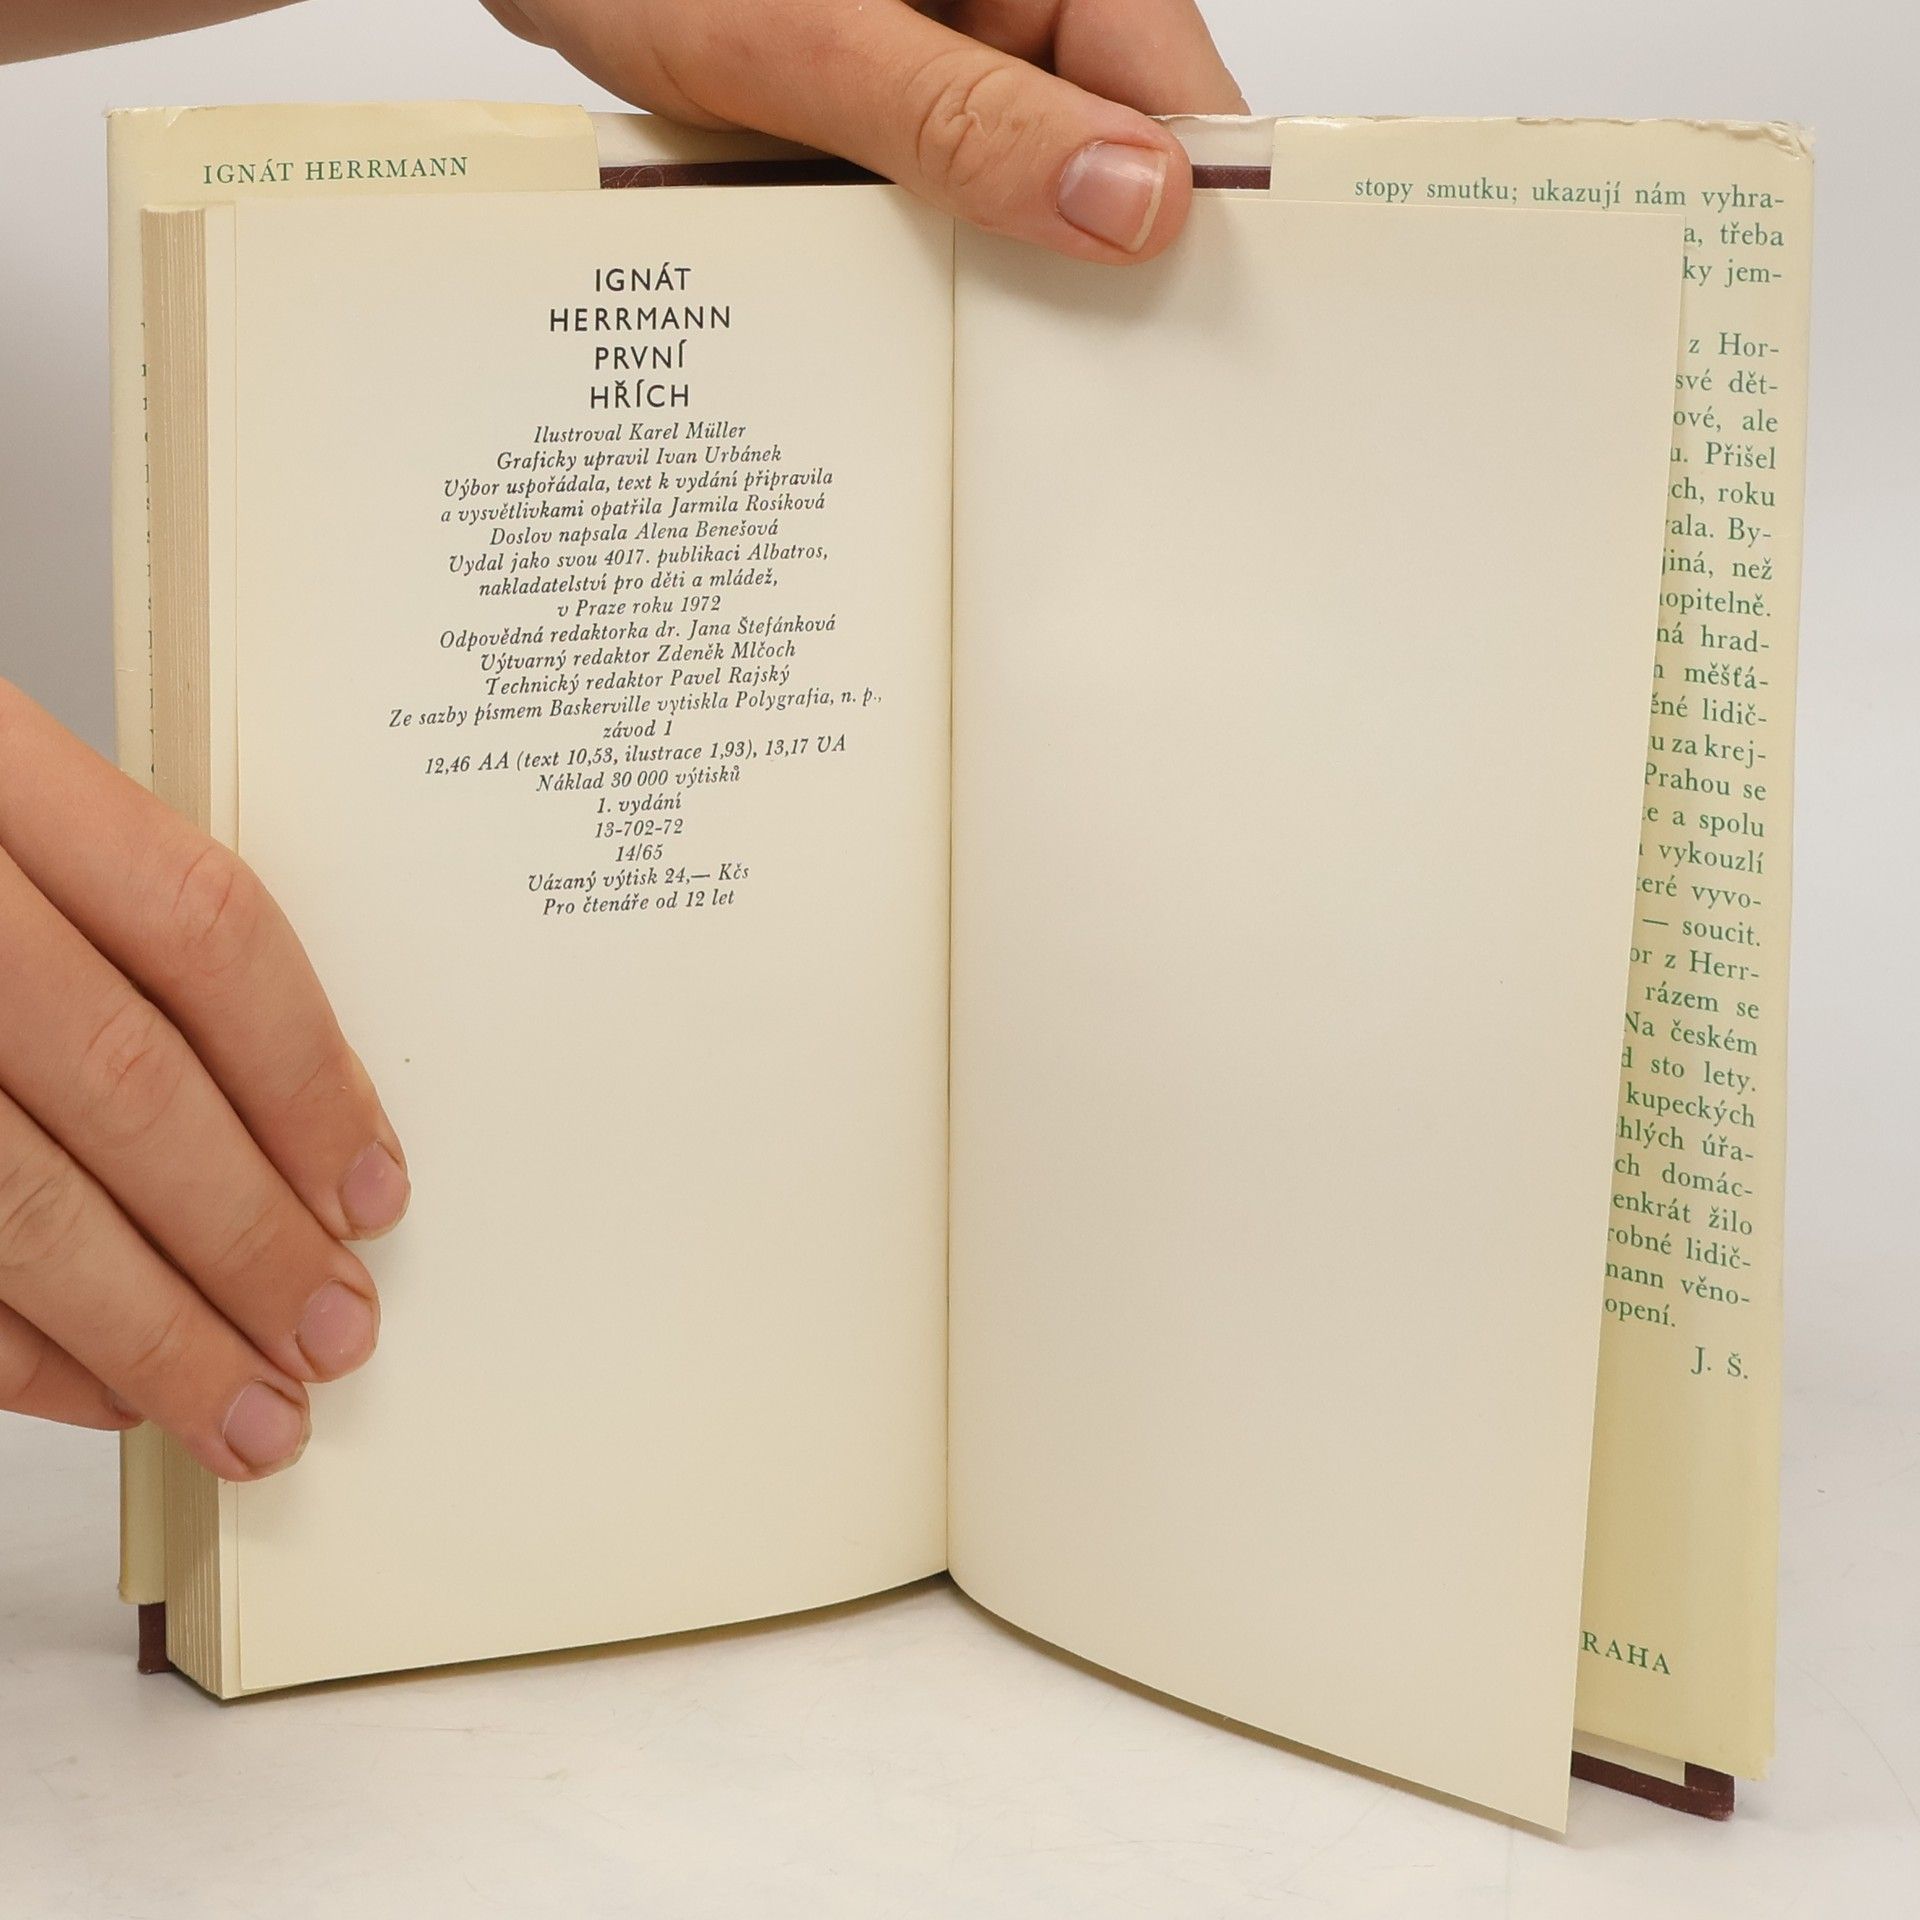 IGNÁT HERRMANN
IGNÁT
HERRMANN
PRVNÍ
HŘÍCH
Ilustroval Karel Müller
Graficky upravil Ivan Urbánek
Výbor uspořádala, text k vydání připravila
a vysvětlivkami opatřila Jarmila Rosíková
Doslov napsala Alena Benešová
Vydal jako svou 4017. publikaci Albatros,
nakladatelství pro děti a mládež,
v Praze roku 1972
Odpovědná redaktorka dr. Jana Štefánková
Výtvarný redaktor Zdeněk Mlčoch
Technický redaktor Pavel Rajský
Ze sazby písmem Baskerville vytiskla Polygrafia, n. p.,
závod 1
12,46 AA (text 10,53, ilustrace 1,93), 13,17 VA
Náklad 30 000 výtisků
1. vydání
13-702-72
14/65
Vázaný výtisk 24,— Kčs
Pro čtenáře od 12 let
stopy smutku; ukazují nám vyhra-
a, třeba
ky jem-
z Hor-
své dět-
ové, ale
u. Přišel
ch, roku
ala. By-
jiná, než
opitelně.
ná hrad-
měšťá-
ěné lidič-
u za krej-
Prahou se
e a spolu
vykouzlí
teré vyvo-
— soucit.
or z Herr-
rázem se
Na českém
d sto lety.
kupeckých
hlých úřa-
ch domác-
enkrát žilo
robné lidič-
mann věno-
opení.
J. Š.
RAHA